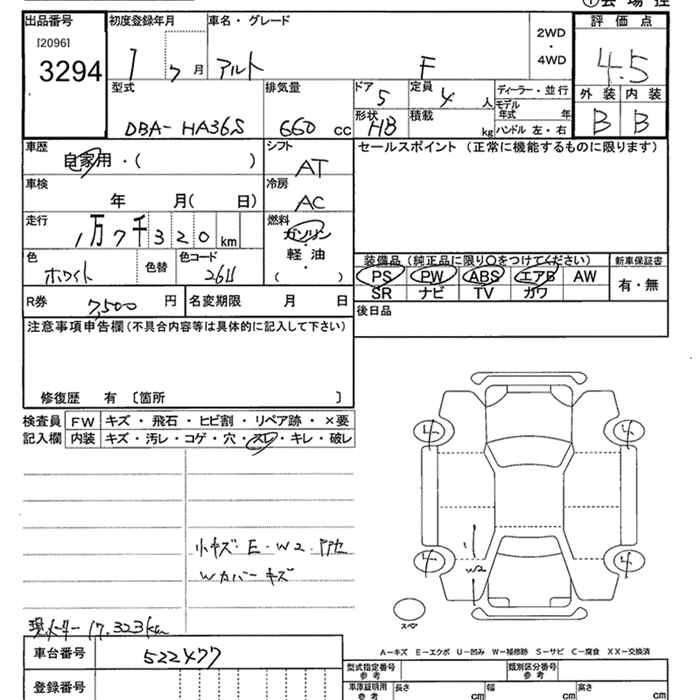 ① 会 場 控
出品番号 初度登録年月 車名・グレード 2WD・4WD 評 価 点
[2096]
3294 1 7 月 アルト F 4.5
型式 排気量 ドア 5 定員 4 人 ディーラー・並行 外 装 内 装
DBA- HA36S 660 cc 形状 HB 積載 kg モデル年式 年 B B
ハンドル 左・右
車歴 シフト セールスポイント (正常に機能するものに限ります)
自家用・( ) AT
車検 冷房
年 月( 日) AC
走行 燃料
1万7千320 km ガソリン
色 色替 色コード 軽 油 装備品 (純正品に限り○をつけてください) 新車保証書
ホワイト 2611 ( ) PS PW ABS エアB AW 有・無
R券 7,500 円 名変期限 月 日 SR ナビ TV カワ
注意事項申告欄(不具合内容等は具体的に記入して下さい) 後日品
修復歴 有 〔箇所 〕
検査員 FW キズ・飛石・ヒビ割・リペア跡・×要
記入欄 内装 キズ・汚レ・コゲ・穴・スレ・キレ・破レ
4 4
小キズ・E・W2
Wカバーキズ
W2
4 4
スペア
現メーター 17,323km
A−キズ E−エクボ U−凹み W−補修跡 S−サビ C−腐食 XX−交換済
車台番号 522477
型式指定番号 参考 類別区分番号 参考
登録番号 車庫証明用 参考 長さ cm 幅 cm 高さ cm